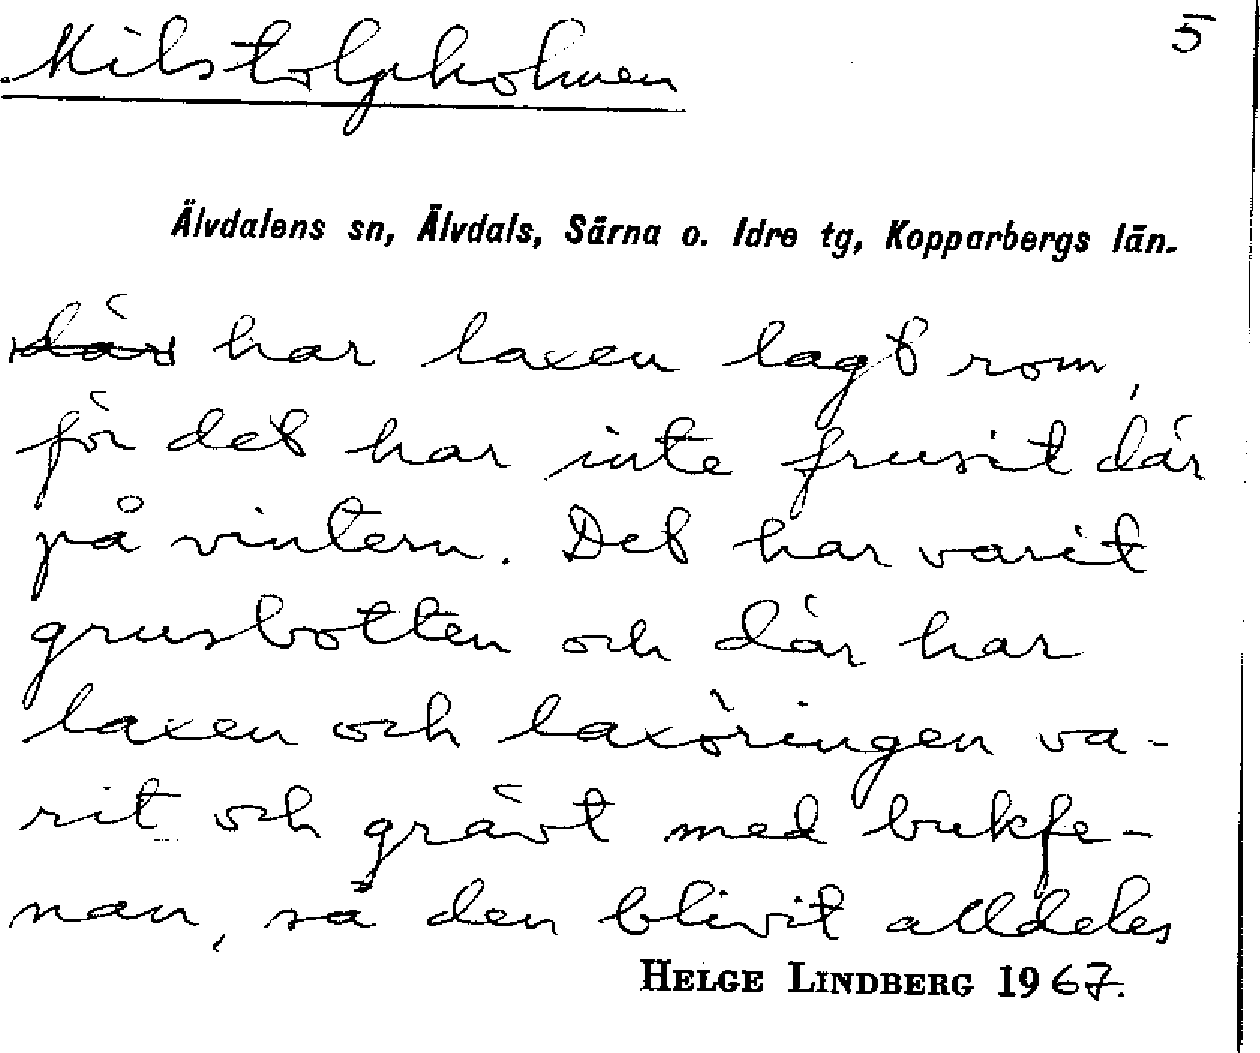 Milstolpholmen
5
Älvdalens sn, Älvdals, Särna o. Idre tg, Kopparbergs län.
där har laxen lagt rom,
för det har inte frusit där
på vintern. Det har varit
grusbotten och där har
laxen och laxöringen va-
rit och grävt med bukfe-
nan, så den blivit alldeles
HELGE LINDBERG 1967.